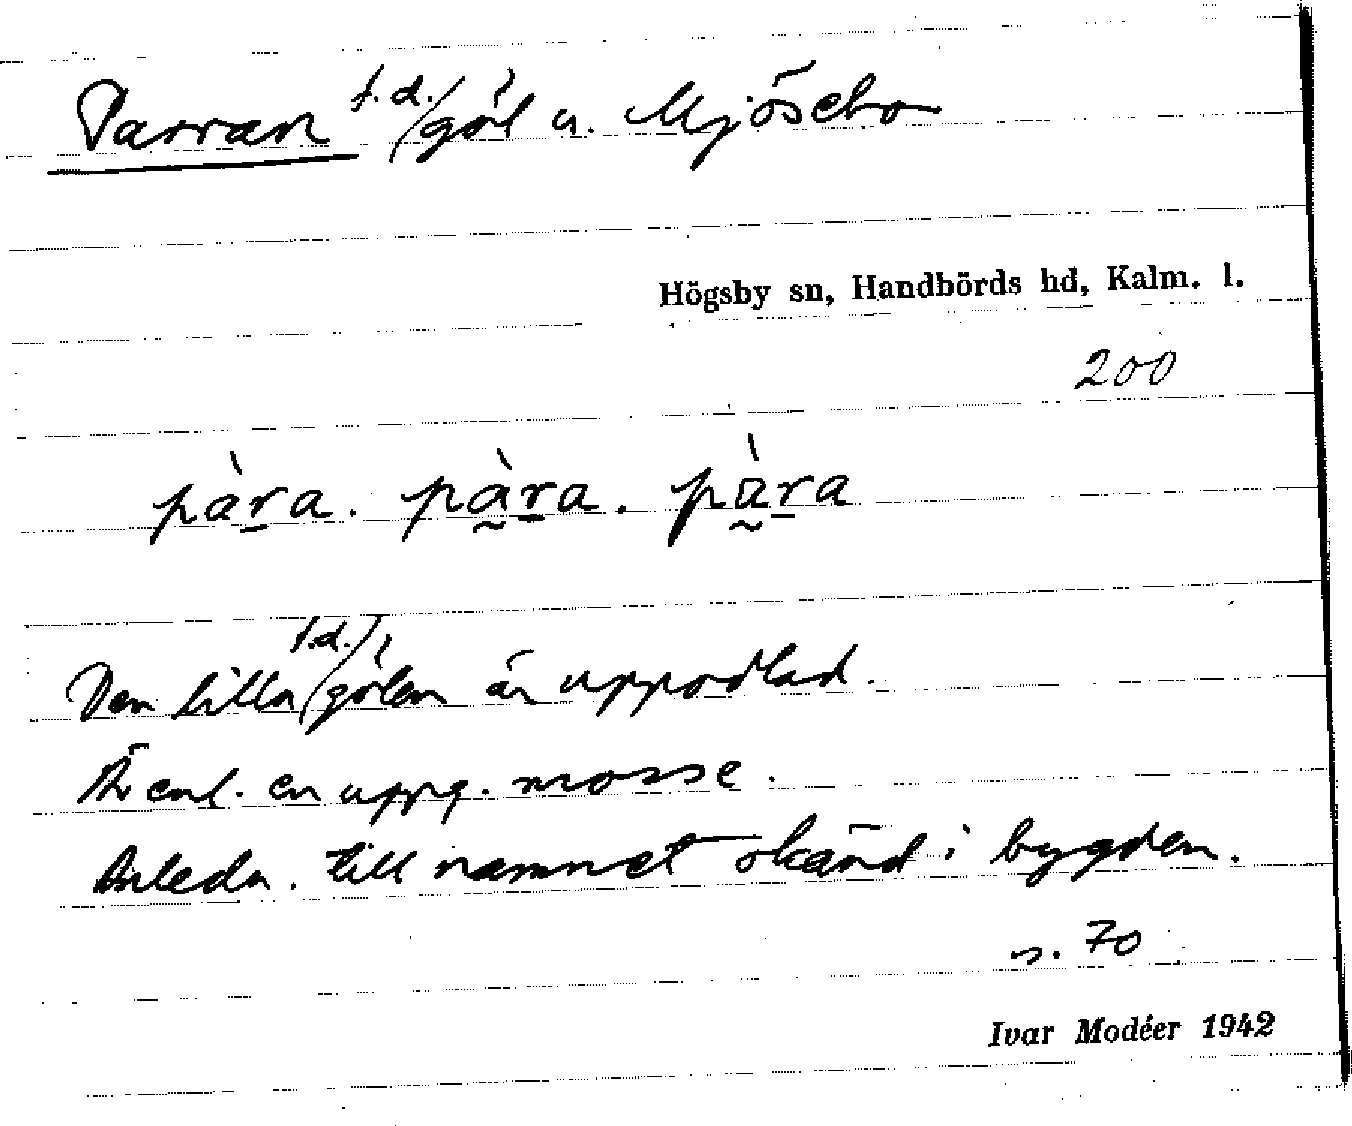 Parran f.d./göl u. Mjösebo
Högsby sn, Handbörds hd, Kalm. l.
200
pàra. pàra. pàra
Den lilla f.d./gölen är uppodlad.
Är enl. en uppg. mosse.
Anledn. till namnet okänd i bygden.
s. 70
Ivar Modéer 1942